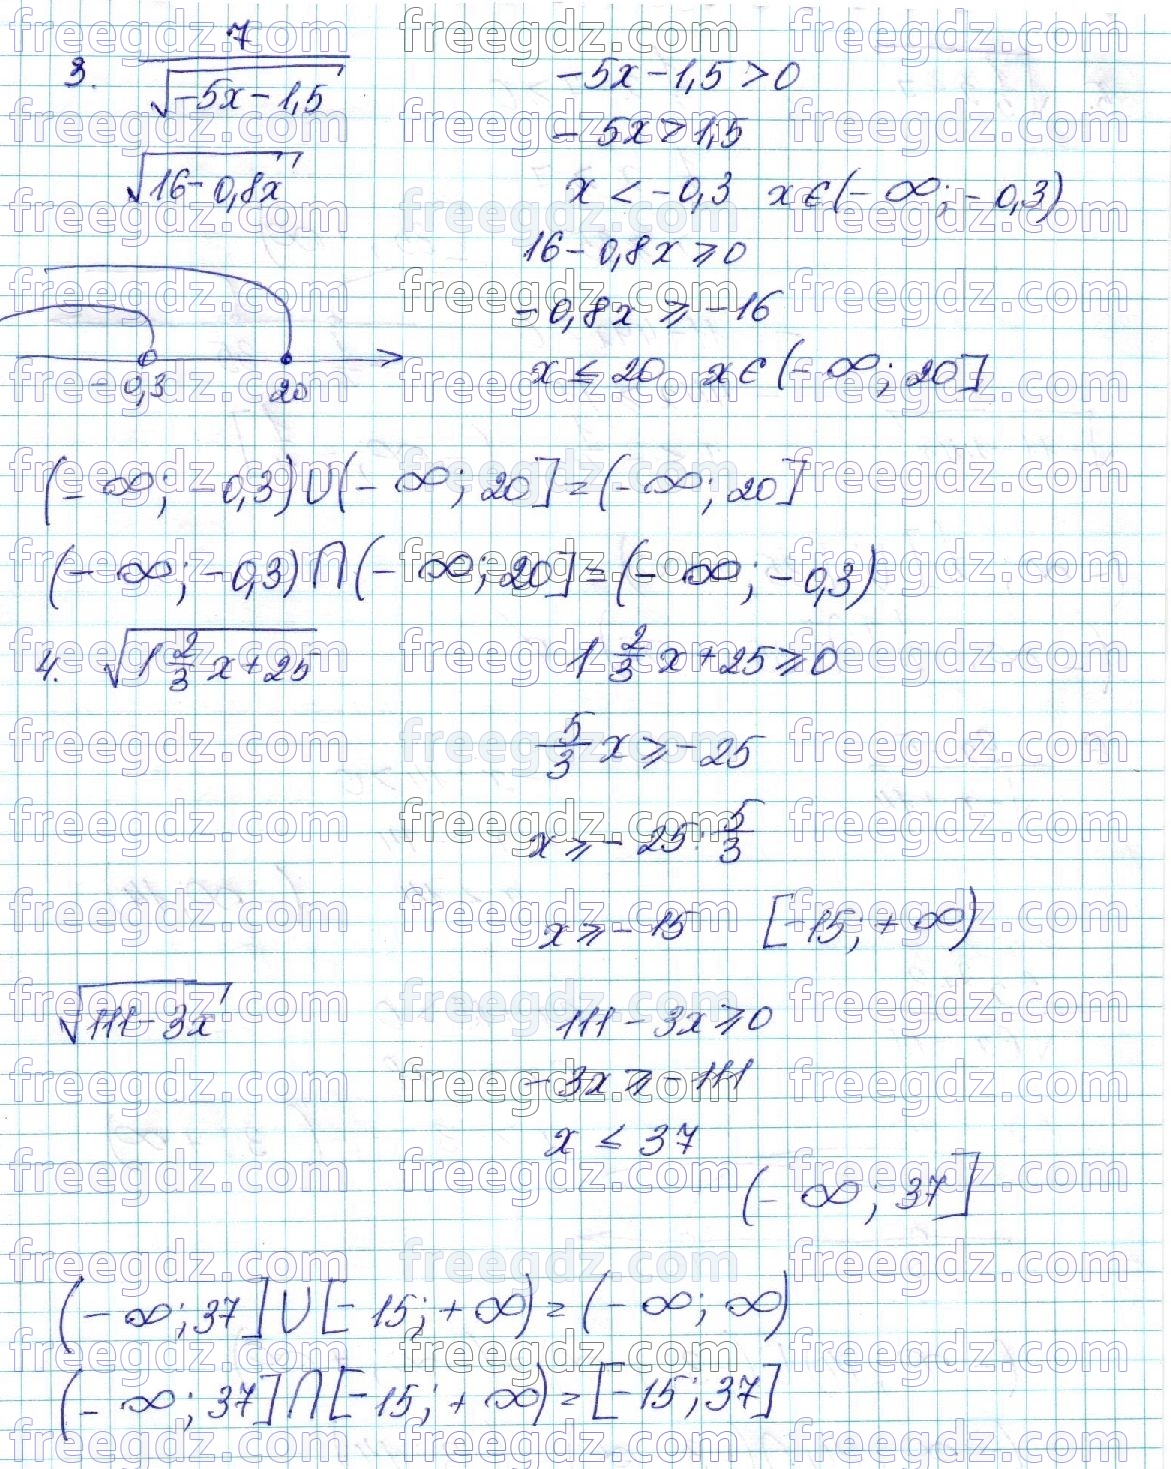 3. 7/√(-5x-1,5)
-5x-1,5>0
-5x>1,5
√(16-0,8x)
x<-0,3 x∈(-∞;-0,3)
16-0,8x⩾0
-0,8x⩾-16
x≤20 x∈(-∞;20]
-0,3 20
(-∞;-0,3)∪(-∞;20]=(-∞;20]
(-∞;-0,3)∩(-∞;20]=(-∞;-0,3)
4. √(1 2/3 x+25)
1 2/3 x+25⩾0
5/3 x⩾-25
x⩾-25:5/3
x⩾-15 [-15;+∞)
√(111-3x)
111-3x⩾0
-3x⩾-111
x≤37
(-∞;37]
(-∞;37]∪[-15;+∞)=(-∞;∞)
(-∞;37]∩[-15;+∞)=[-15;37]
freegdz.com